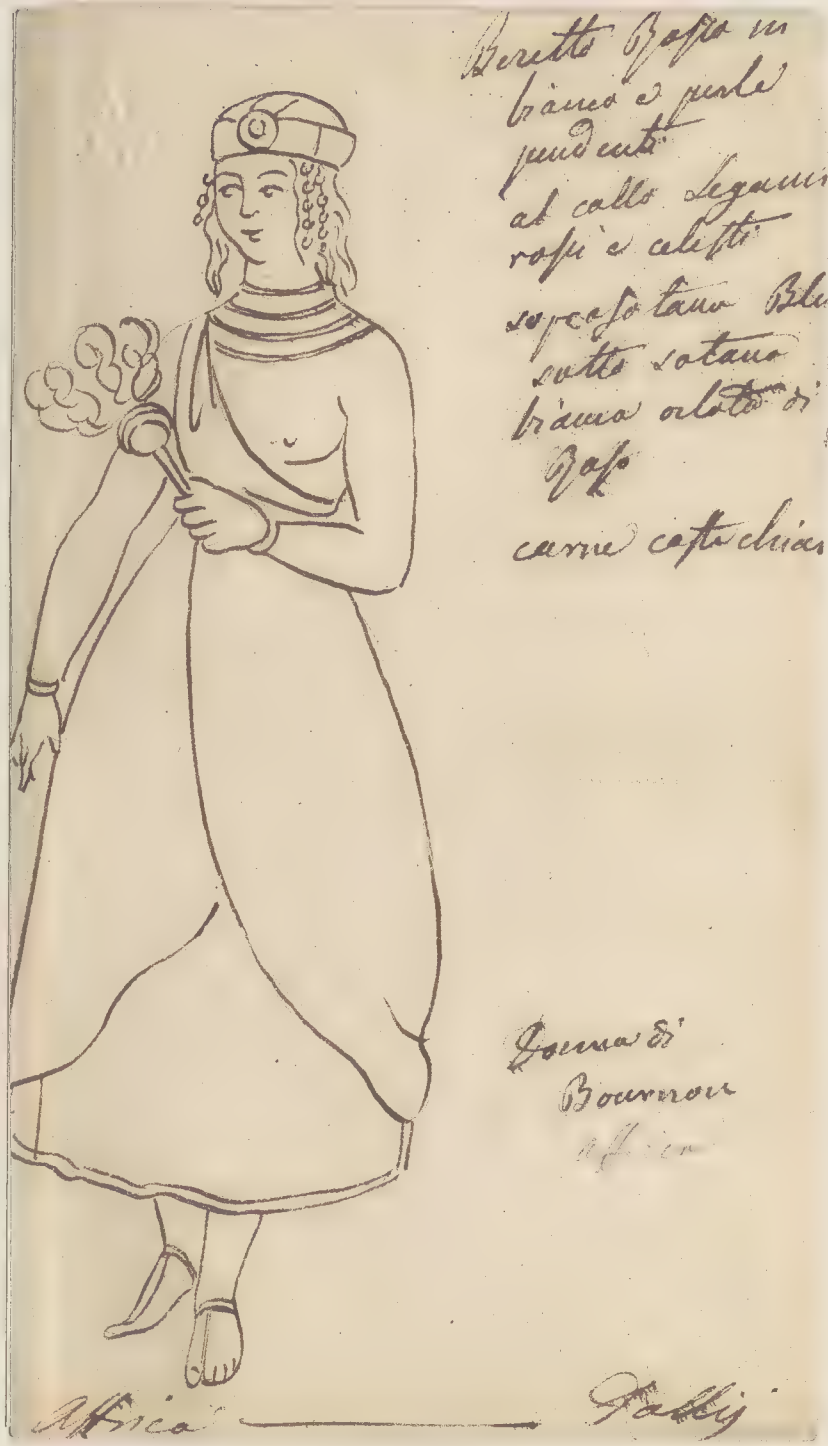 Beretto Rosso in
bianco e perle
pendenti
al collo Legami
rossi e celesti
soprasotana Blu
sotto sotana
bianca orlata di
Rosso
carne castachiar
Donna di
Bournou
Affrica
Affrica